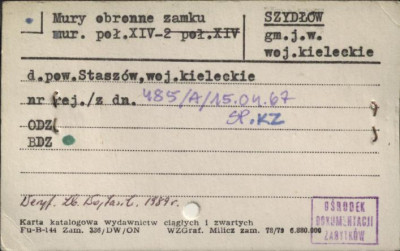 Mury obronne zamku
mur. poł.XIV-2 poł.XIV
SZYDŁÓW
gm.j.w.
woj.kieleckie
d.pow.Staszów,woj.kieleckie
nr (rej./z dn. 485/A/15.04.67)
ODZ( SP.KZ )
BDZ
Weryf. 1984 r.
OŚRODEK
DOKUMENTACJI
ZABYTKÓW
Karta katalogowa wydawnictw ciągłych i zwartych
Fu-B-144 Zam. 336/DW/ON WZGraf. Milicz zam. 78/79 6.550.000